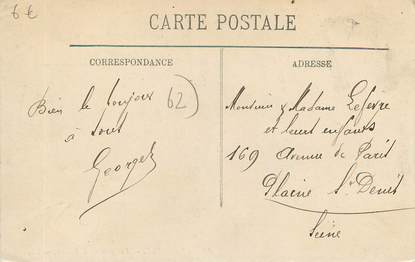 6 €
CARTE POSTALE
CORRESPONDANCE
ADRESSE
Bien le bonjour
à tout
Georges
62)
Monsieur & Madame Lefevre
et leurs enfants
169 Avenue de Paris
Plaine St Denis
Seine